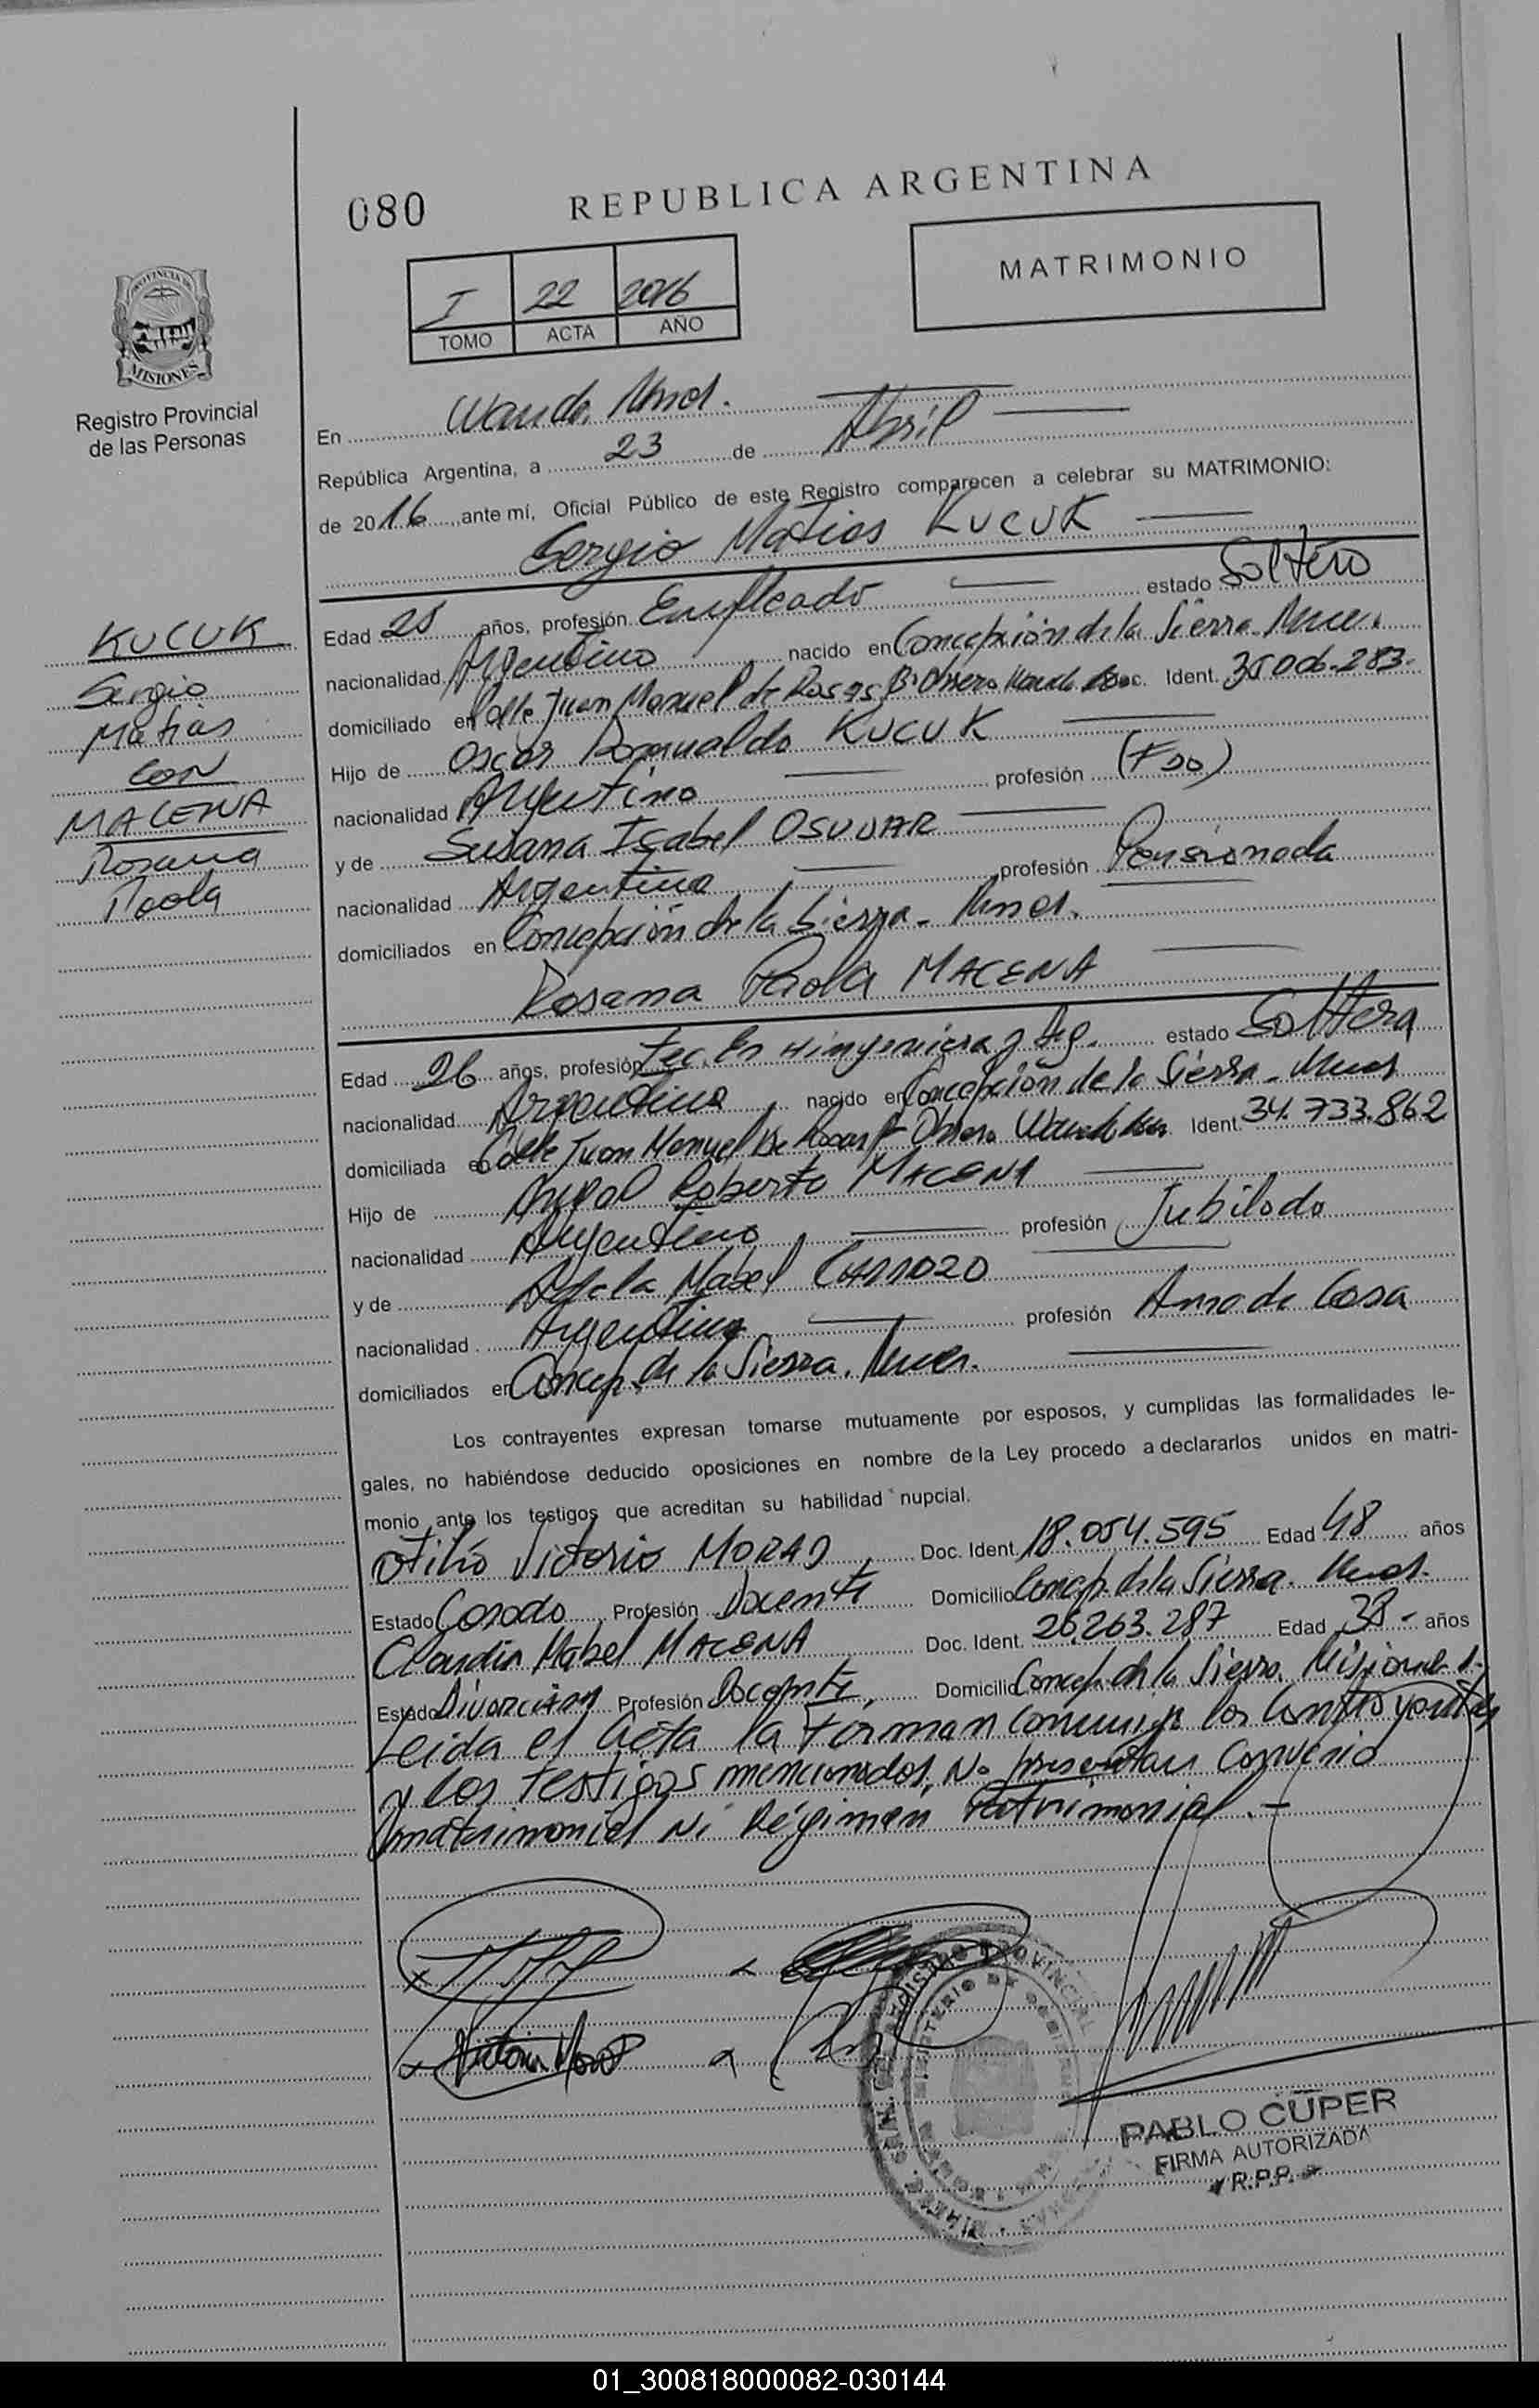 080
REPUBLICA ARGENTINA
MATRIMONIO
I 22 2016
TOMO ACTA AÑO
PROVINCIA DE
MISIONES
Registro Provincial
de las Personas
En Wanda, Mnes.
República Argentina, a 23 de Abril
de 2016, ante mí, Oficial Público de este Registro comparecen a celebrar su MATRIMONIO:
Sergio Matias KUCUK
Edad 25 años, profesión Empleado estado Soltero
nacionalidad Argentino nacido en Concepción de la Sierra Mnes.
domiciliado en Calle Juan Manuel de Rosas, B° Obrero Doc. Ident.
Hijo de Oscar Romualdo KUCUK
nacionalidad Argentino profesión (Fdo)
y de Susana Isabel
nacionalidad Argentina profesión Pensionada
domiciliados en Concepción de la Sierra - Mnes.
Rosana Paola MACENA
Edad 26 años, profesión Tec. En estado Soltera
nacionalidad Argentina nacido en Concepción de la Sierra - Mnes
domiciliada en Calle Juan Manuel de Rosas B° Obrero Wanda Mnes Ident. 34.733.862
Hijo de Roberto MACENA
nacionalidad Argentino profesión Jubilado
y de Mabel
nacionalidad Argentina profesión Ama de Casa
domiciliados en Concep. de la Sierra. Mnes.
Los contrayentes expresan tomarse mutuamente por esposos, y cumplidas las formalidades le-
gales, no habiéndose deducido oposiciones en nombre de la Ley procedo a declararlos unidos en matri-
monio ante los testigos que acreditan su habilidad nupcial.
Otilio Victorio Doc. Ident. 18.054.595 Edad 48 años
Estado Casado Profesión Docente Domicilio Concep. de la Sierra. Mnes.
Claudia Mabel MACENA Doc. Ident. 26.263.287 Edad 38 - años
Estado Divorciada Profesión Docente, Domicilio Concep. de la Sierra. Misiones.
Leida el Acta la Forman Conmigo los Contrayentes
y los testigos mencionados, No presentan Convenio
matrimonial Ni Régimen Patrimonial.-
KUCUK
Sergio
Matias
CON
MACENA
Rosana
Paola
PABLO CUPER
FIRMA AUTORIZADA
R.P.P.
01_300818000082-030144